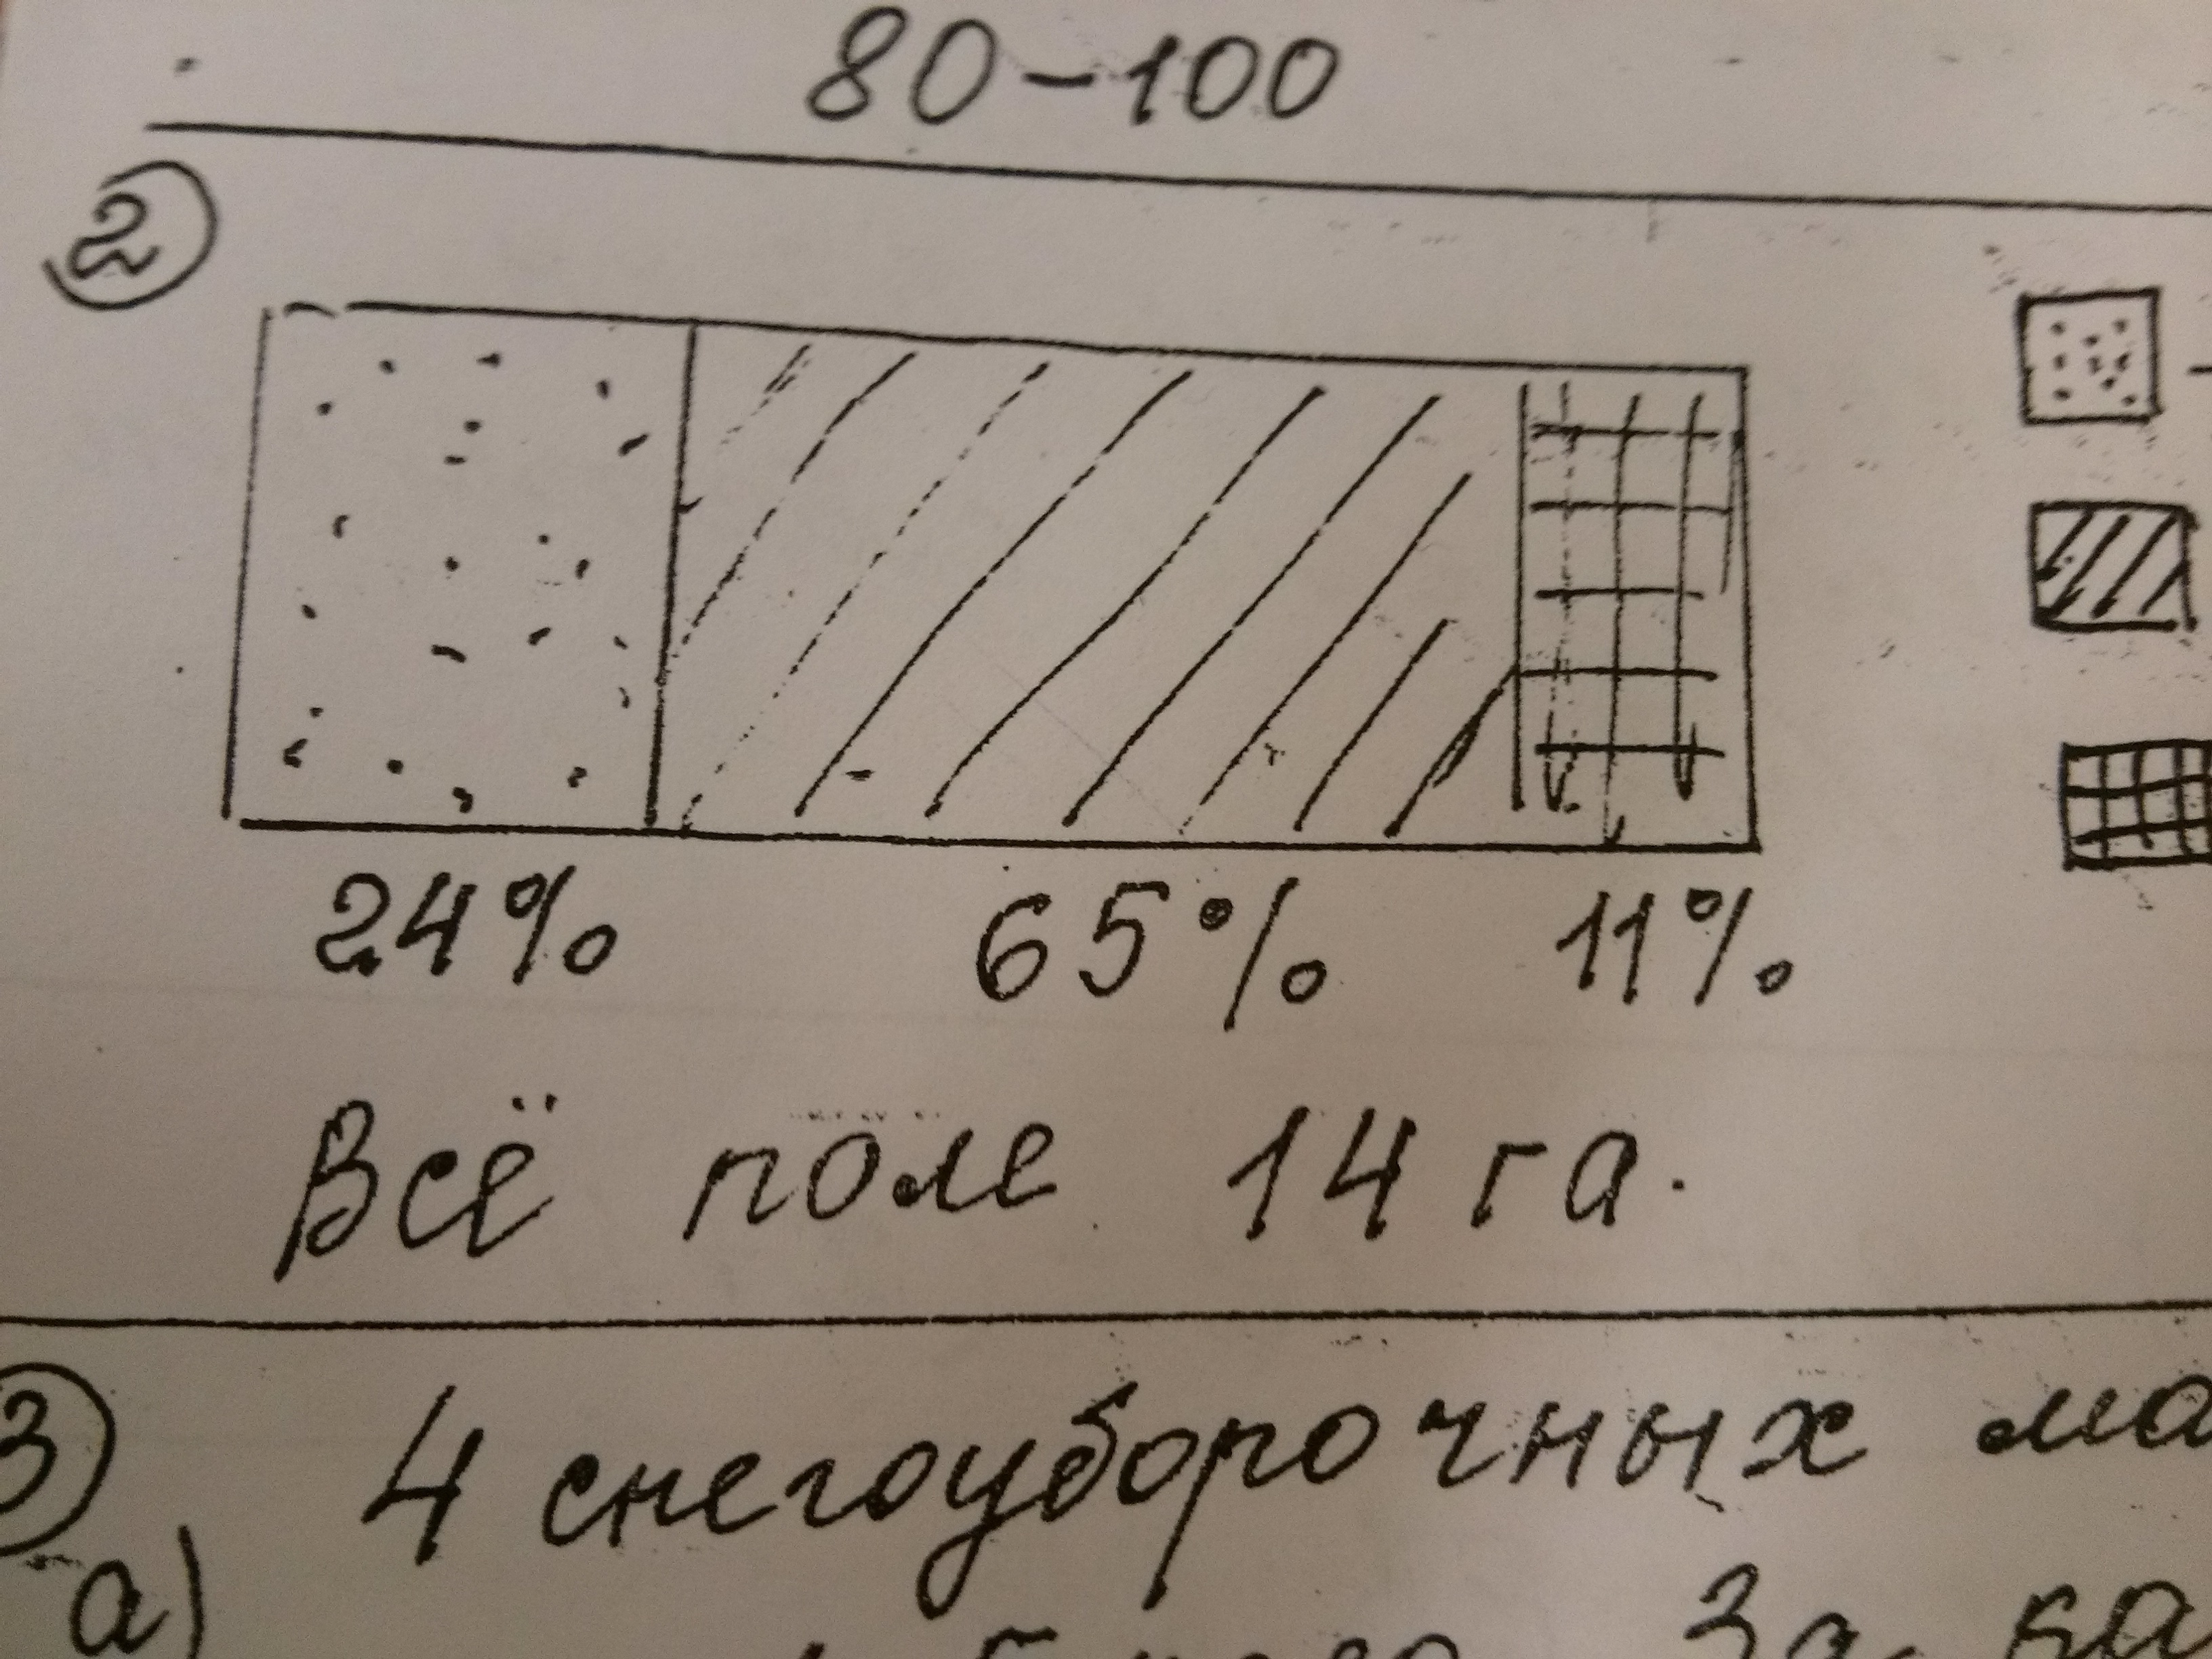 80-100
2
24% 65% 11%
Всё поле 14 га.
3 4 снегоуборочных
а)